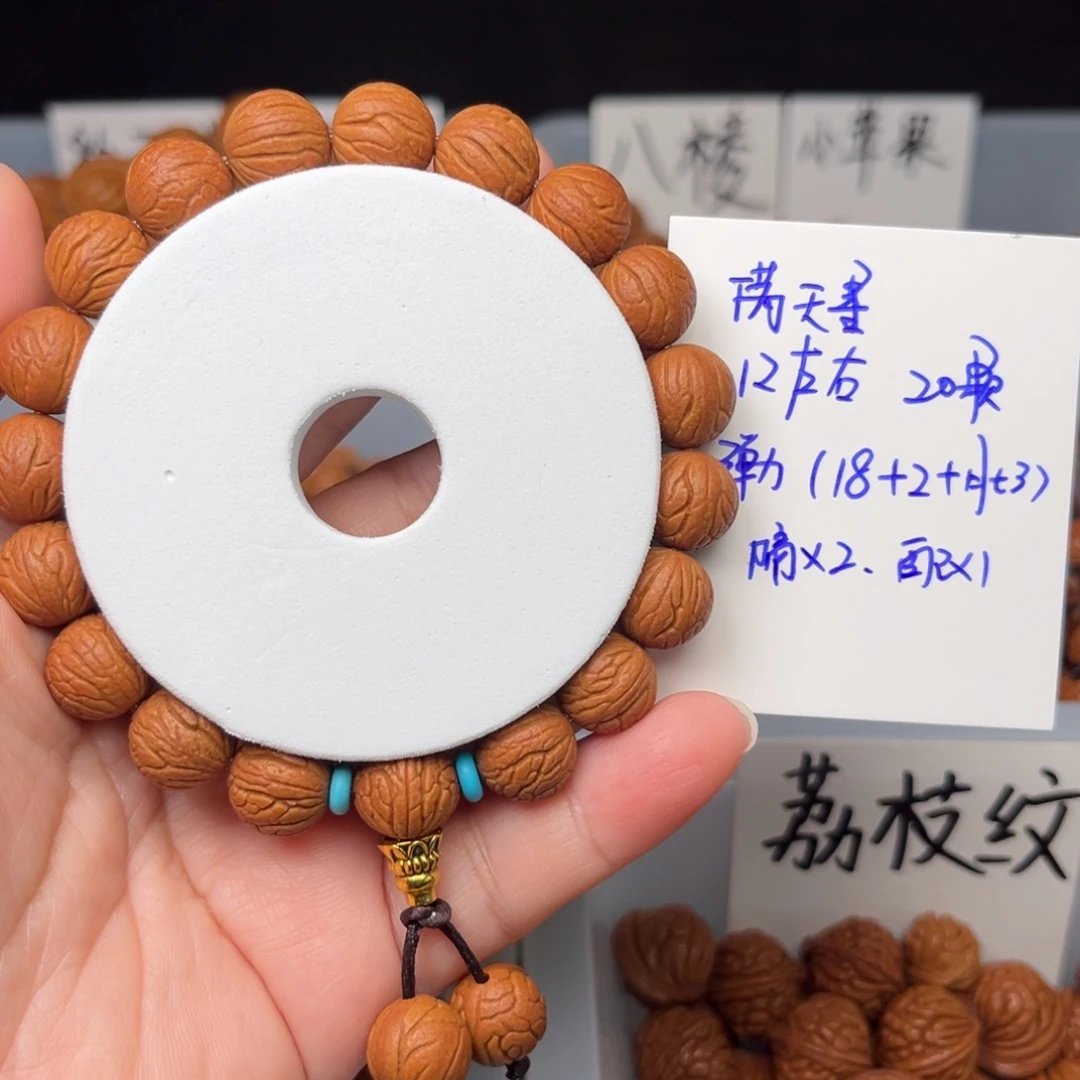 八棱
小苹果
满天星
12左右 20颗
弹力(18+2+时t3)
隔x2、配x1
荔枝纹